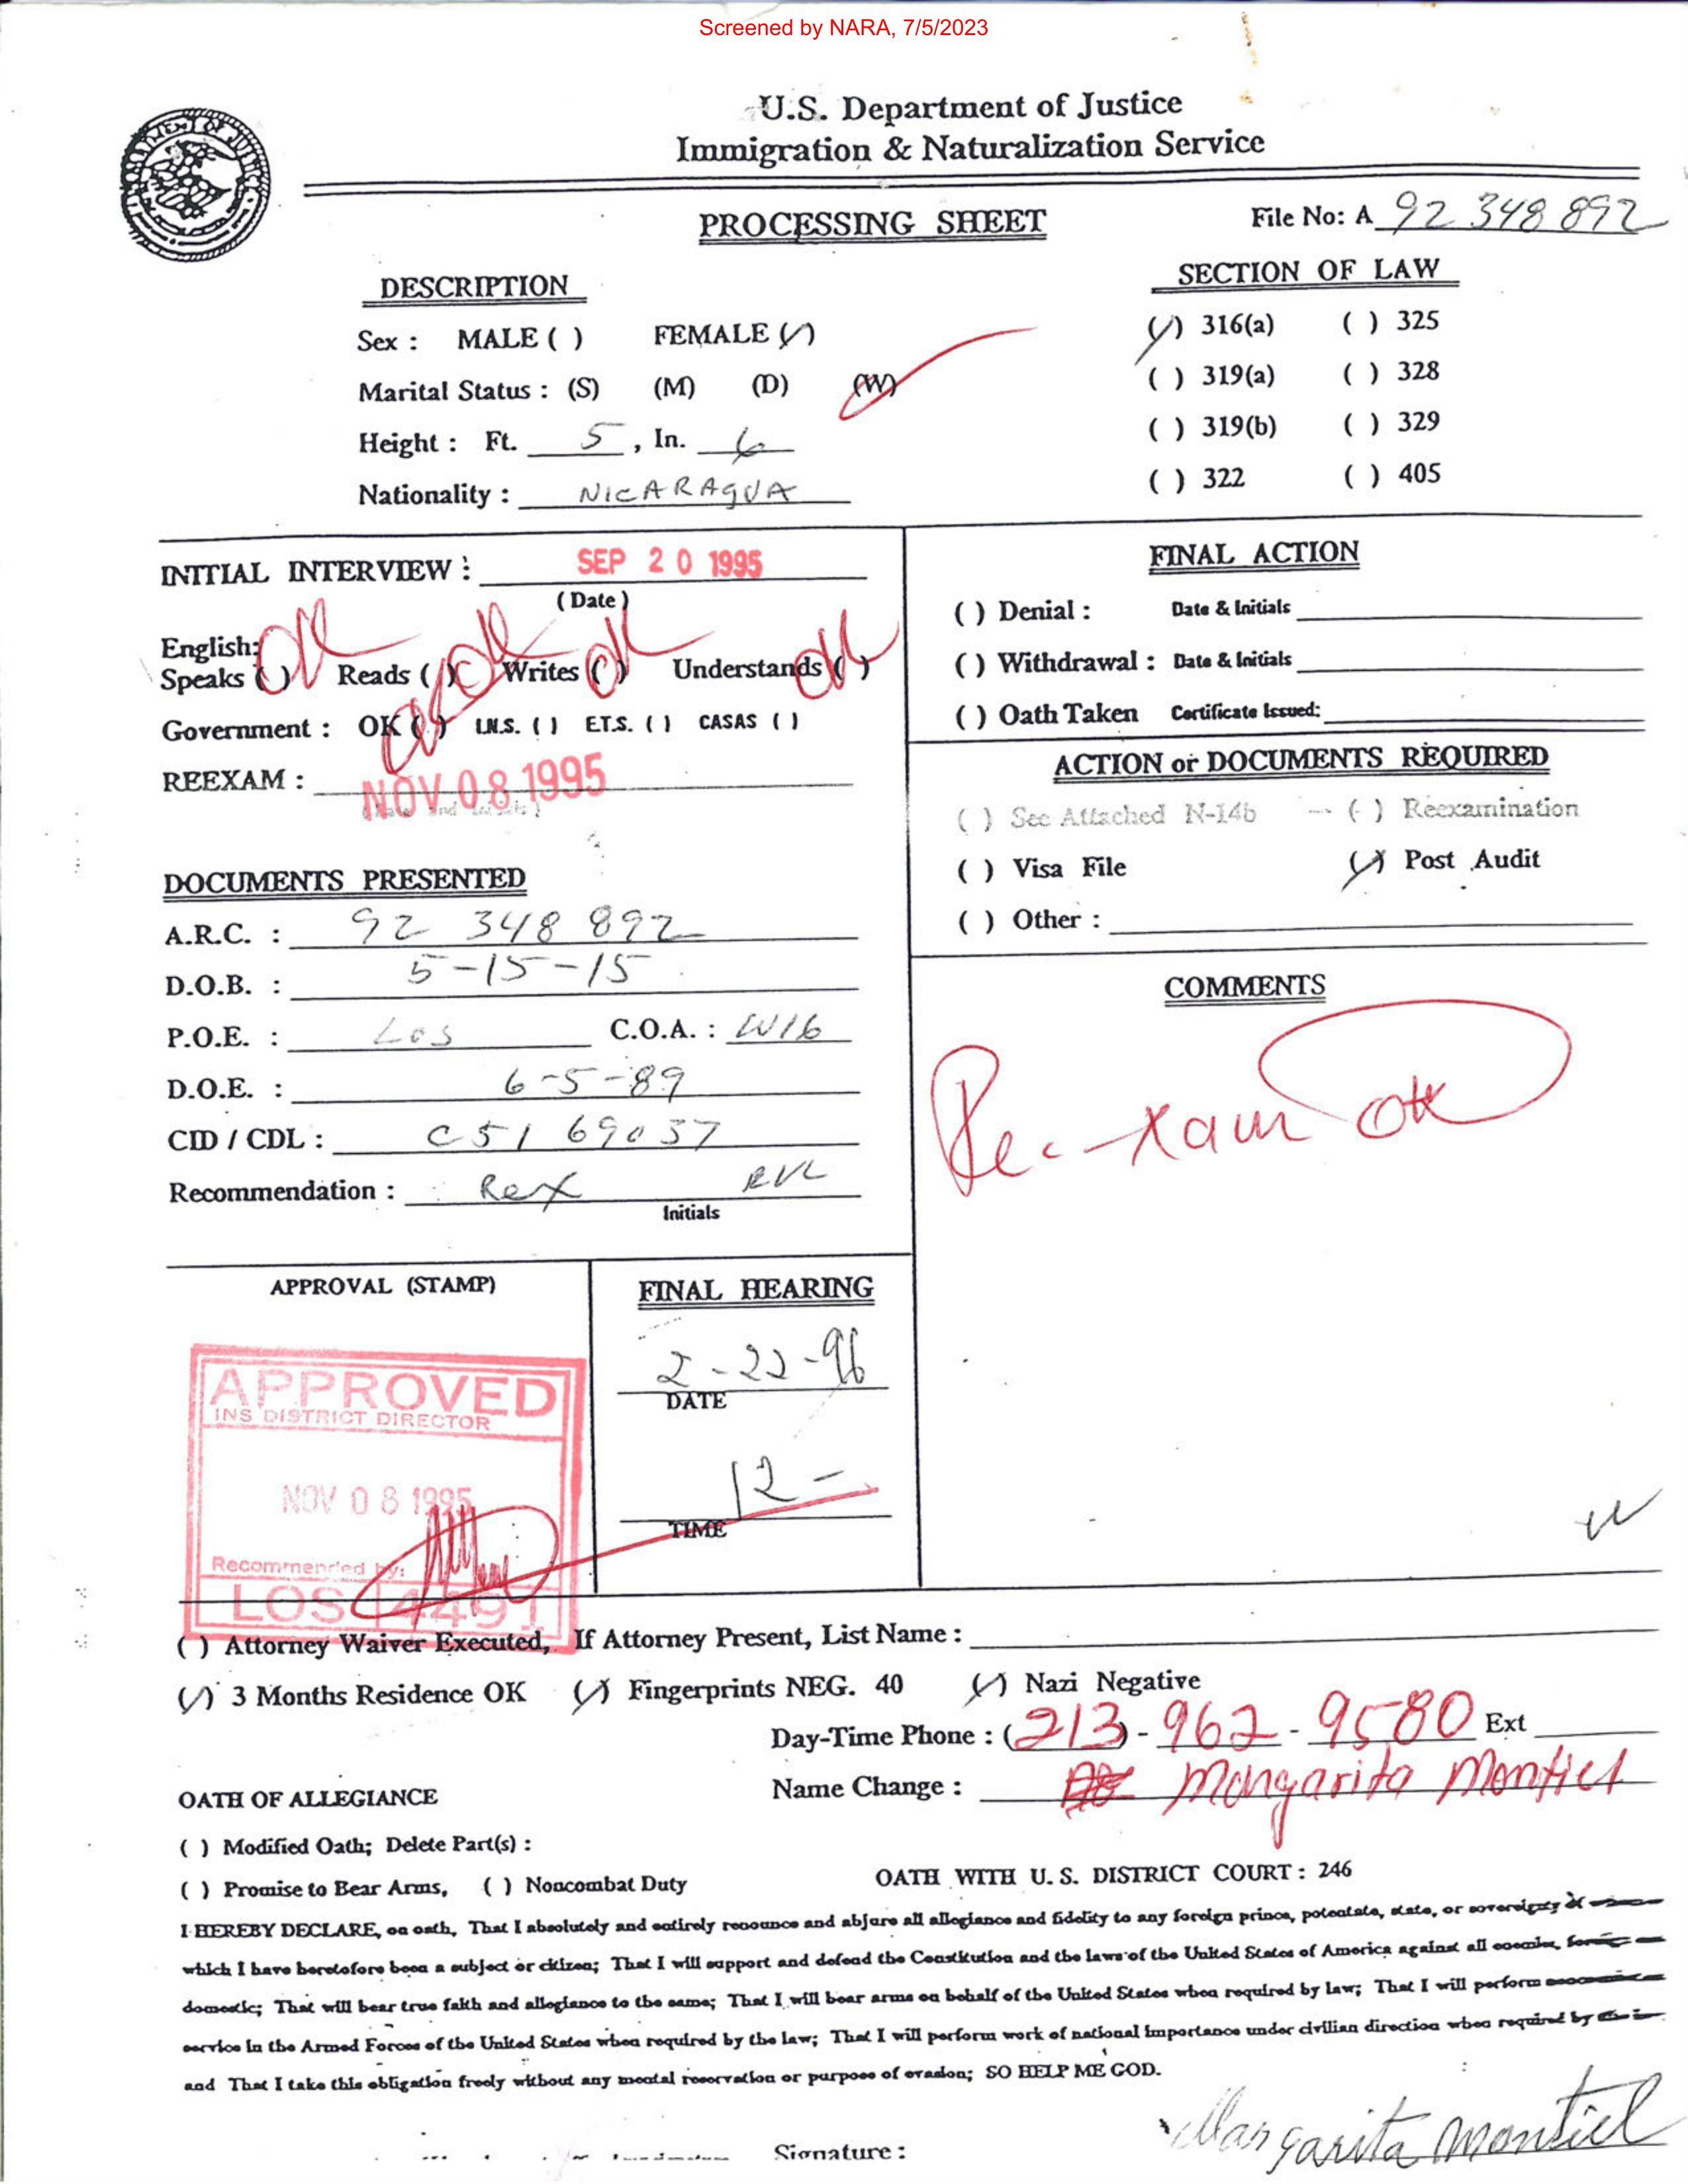 Screened by NARA, 7/5/2023
U.S. Department of Justice
Immigration & Naturalization Service
PROCESSING SHEET
File No: A 92 348 892
DESCRIPTION
Sex : MALE ( ) FEMALE (✓)
Marital Status : (S) (M) (D) (W)
Height : Ft. 5 , In. 6
Nationality : NICARAGUA
SECTION OF LAW
(✓) 316(a) ( ) 325
( ) 319(a) ( ) 328
( ) 319(b) ( ) 329
( ) 322 ( ) 405
INITIAL INTERVIEW : SEP 20 1995
(Date)
English:
Speaks ( ) OK Reads ( ) OK Writes ( ) OK Understands ( ) OK
Government : OK ( ) I.N.S. ( ) E.T.S. ( ) CASAS ( )
REEXAM : NOV 08 1995
DOCUMENTS PRESENTED
A.R.C. : 92 348 892
D.O.B. : 5-15-15
P.O.E. : LOS C.O.A. : W16
D.O.E. : 6-5-89
CID / CDL : C5169037
Recommendation : Rex RVL
Initials
FINAL ACTION
( ) Denial : Date & Initials
( ) Withdrawal : Date & Initials
( ) Oath Taken Certificate Issued:
ACTION or DOCUMENTS REQUIRED
( ) See Attached N-14b ( ) Reexamination
( ) Visa File (✓) Post Audit
( ) Other :
COMMENTS
Re-xam OK
APPROVAL (STAMP)
APPROVED
INS DISTRICT DIRECTOR
NOV 08 1995
Recommended by:
LOS 4491
FINAL HEARING
2-22-96
DATE
12-
TIME
( ) Attorney Waiver Executed, If Attorney Present, List Name :
(✓) 3 Months Residence OK (✓) Fingerprints NEG. 40 (✓) Nazi Negative
Day-Time Phone : (213) - 962 - 9580 Ext
Name Change : Margarita Montiel
OATH OF ALLEGIANCE
( ) Modified Oath; Delete Part(s) :
( ) Promise to Bear Arms, ( ) Noncombat Duty
OATH WITH U.S. DISTRICT COURT : 246
I HEREBY DECLARE, on oath, That I absolutely and entirely renounce and abjure all allegiance and fidelity to any foreign prince, potentate, state, or sovereignty
which I have heretofore been a subject or citizen; That I will support and defend the Constitution and the laws of the United States of America against all enemies,
domestic; That will bear true faith and allegiance to the same; That I will bear arms on behalf of the United States when required by law; That I will perform
service in the Armed Forces of the United States when required by the law; That I will perform work of national importance under civilian direction when required by
and That I take this obligation freely without any mental reservation or purpose of evasion; SO HELP ME GOD.
Signature : Margarita Montiel